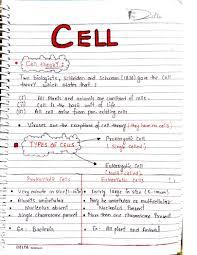 CELL
Cell theory
Two biologists, Schleiden and Schwann (1839) gave the cell
theory which states that :
(i) All Plants and animals are composed of cells.
(ii) Cell is the basic unit of life
(iii) All cell arise from pre-existing cells
• Viruses are the exceptions of cell theory (they have no cells)
TYPES OF CELLS
Prokaryotic Cell
(Single celled)
Eukaryotic Cell
Prokaryotic Cells
Eukaryotic Cells
• Very minute in size
• Fairly large in size
• Always unicellular
• May be unicellular or multicellular
• Nucleolus absent
• Nucleolus Present
• Single chromosome present
• More than one Chromosome present
• Ex:- Bacteria
• Ex:- All plant and Animal